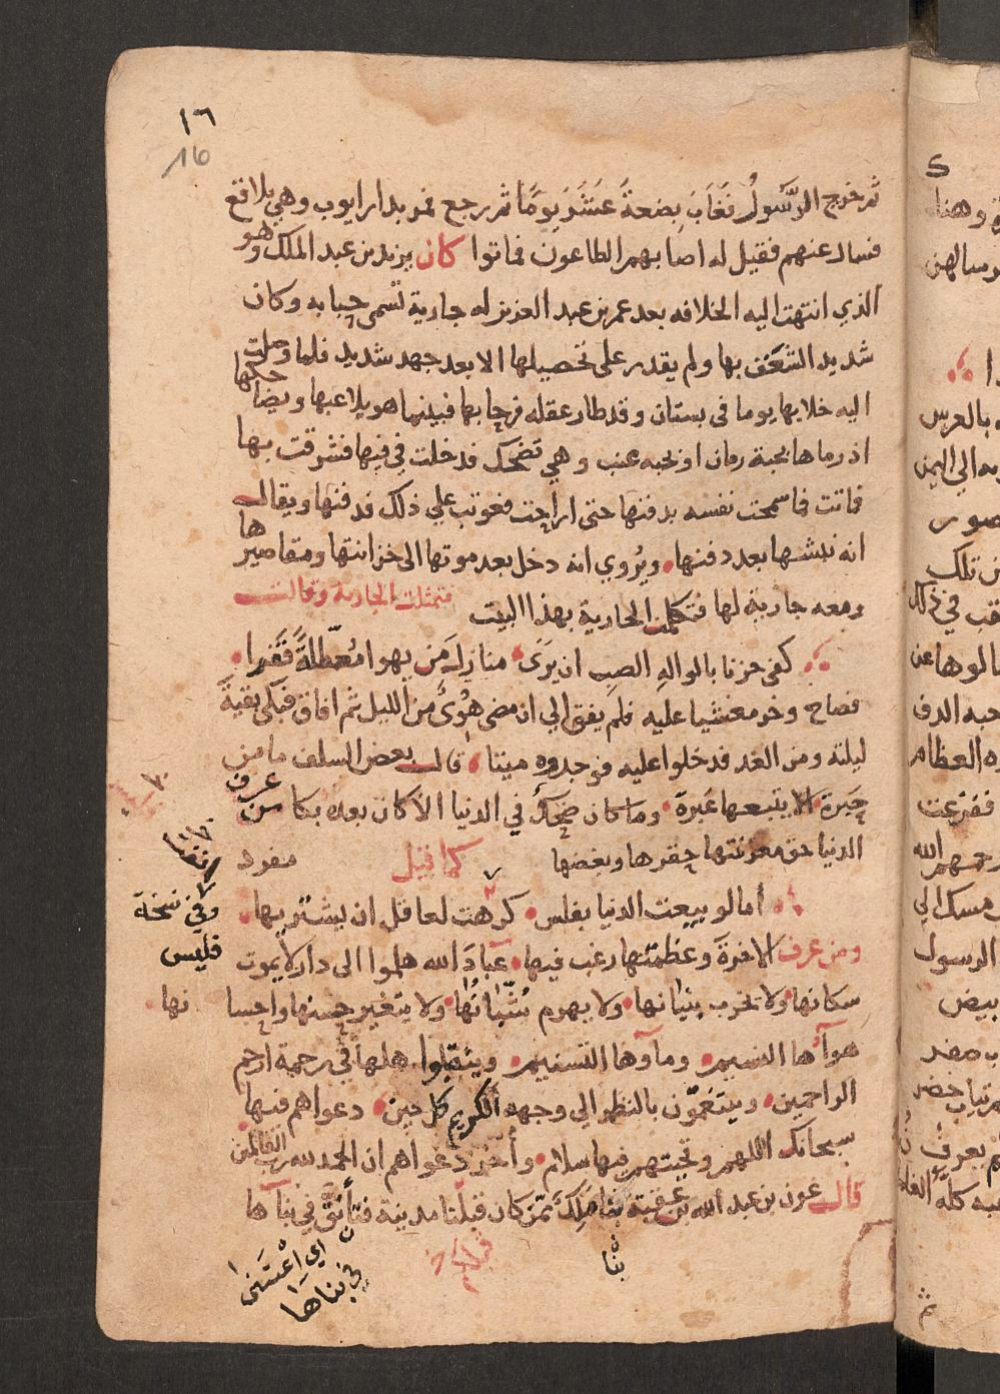 ١٦
16
ثم خرج الرسول فغاب بضعة عشر يوما ثم رجع فمر بدار ايوب وهي بلاقع
فسال عنهم فقيل له اصابهم الطاعون فماتوا كان يزيد بن عبد الملك وهو
الذي انتهت اليه الخلافه بعد عمر بن عبد العزيز له جارية تسمى حبابه وكان
شديد الشغف بها ولم يقدر على تحصيلها الا بعد جهد شديد فلما وصلت
اليه خلا بها يوما في بستان وقد طار عقله فرحا بها فبينما هو يلاعبها ويضاحكها
اذ رماها بحبة رمان او بحبه عنب وهي تضحك فدخلت في فيها فشرقت بها
فماتت فما سمحت نفسه بدفنها حتى اراحت فعوتب علي ذلك فدفنها ويقال
انه نبشها بعد دفنها ويروي انه دخل بعد موتها الى خزانتها ومقاصيرها
ومعه جارية لها فتكلمت الجارية بهذا البيت فتمثلت الجارية وقالت
كفى حزنا بالواله الصب ان يرى منازل من يهوا معطلة قفرا
فصاح وخر مغشيا عليه فلم يفق الي ان مضى هوي من الليل ثم افاق فبكى بقية
ليلته ومن الغد فدخلوا عليه فوجدوه ميتا قال بعض السلف ما من
حبرة الا يتبعها عبرة وما كان ضحك في الدنيا الا كان بعده بكا من عرف
الدنيا حق معرفتها حقرها وبغضها كما قيل مفرد
أما لو بيعت الدنيا بفلس كرهت لعاقل ان يشتريها
وفي نسخة
فليس
ومن عرف الاخرة وعظمتها رغب فيها عباد الله هلموا الى دار لا يموت
سكانها ولا تخرب بنيانها ولا يهرم شبانها ولا يتغير حسنها واحسانها
هوآها النسيم ومآوها التسنيم ويتقلبوا هلها في رحمة ارحم
الراحمين ويتنعمون بالنظر الي وجهه الكريم كل حين دعواهم فيها
سبحانك اللهم وتحيتهم فيها سلام وأخر دعواهم ان الحمد لله رب العالمين
قال عون بن عبد الله بن عتبة بنا ملك ممن كان قبلنا مدينة فتأنق في بنآها
بنا
اي اعتنى
في بناها